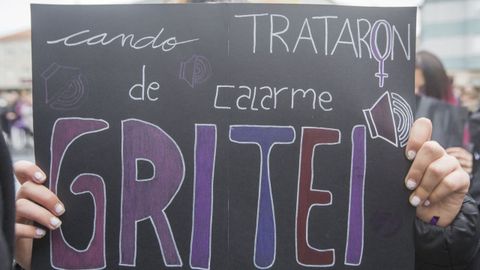 cando TRATARON
de CALARME
GRITEI